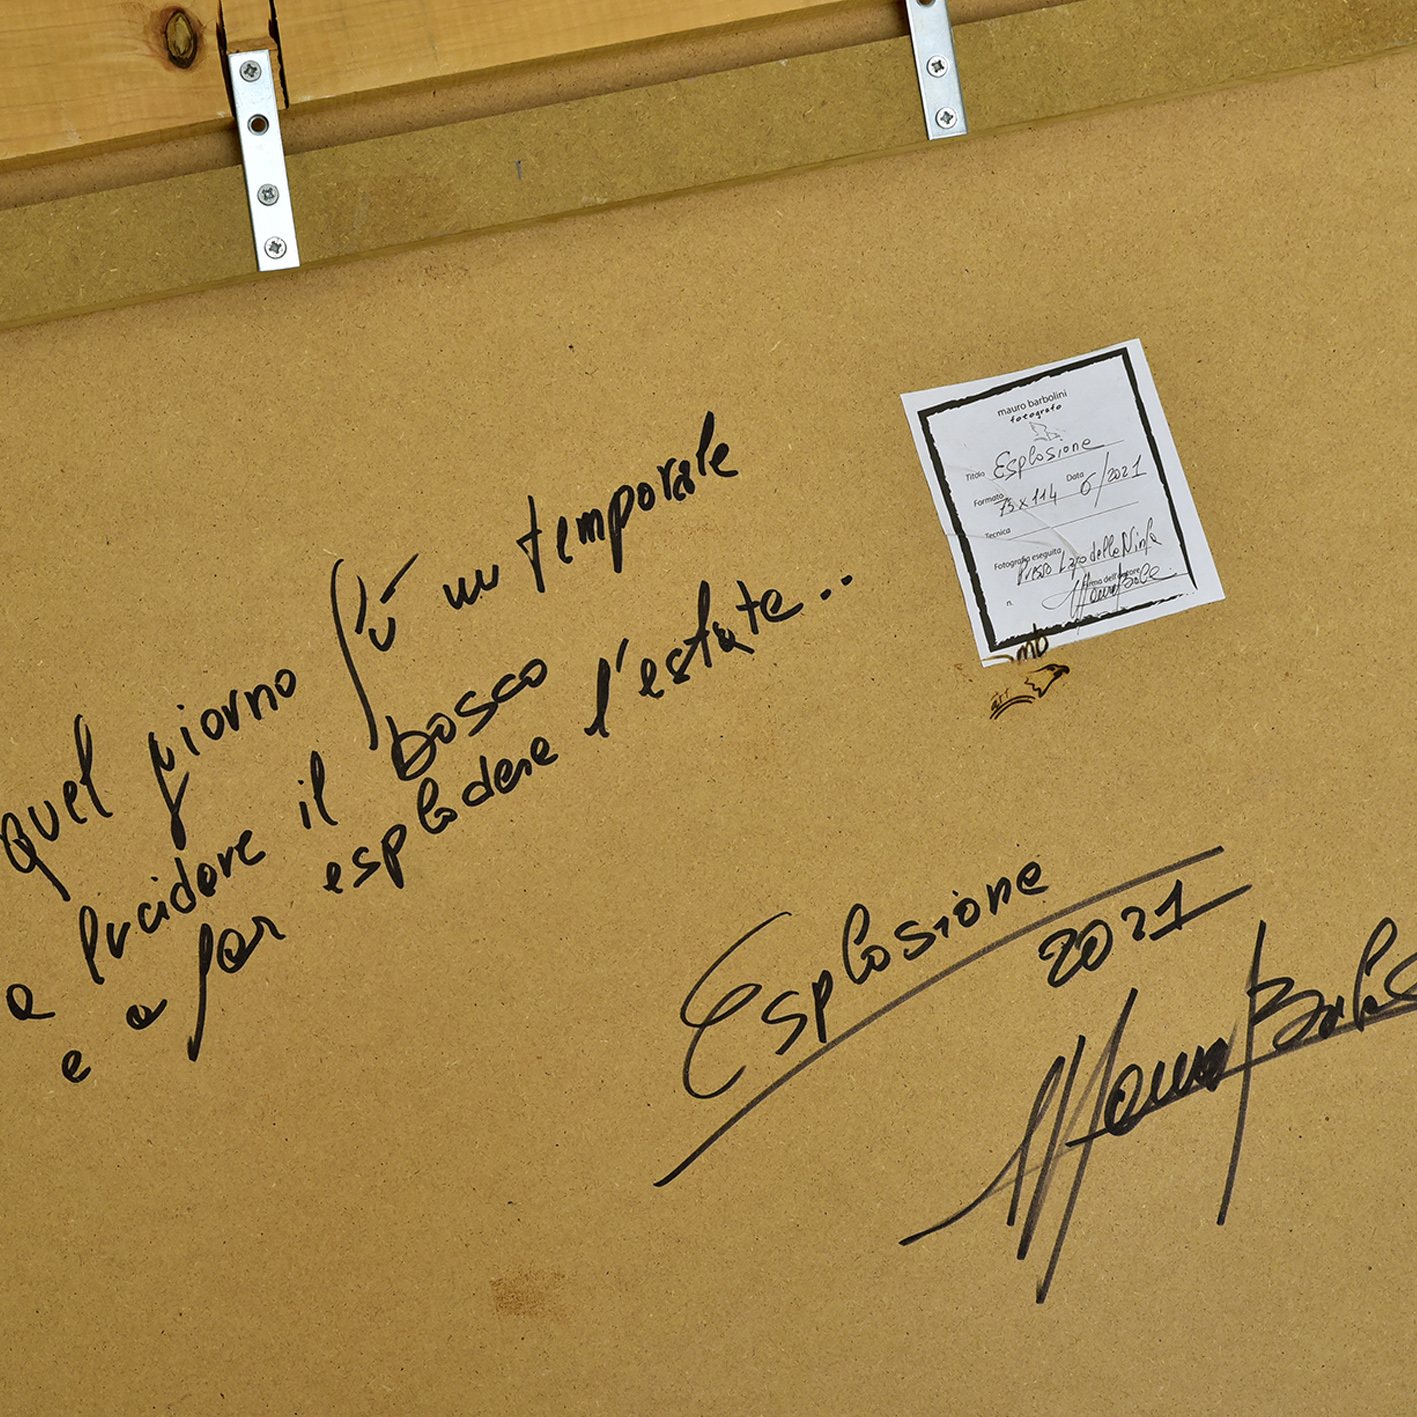 quel giorno fù un temporale
a lucidare il bosco
e a far esplodere l'estate...
mauro barbolini
fotografo
Titolo Esplosione
Formato 75x114 Data 6/2021
Tecnica
Fotografia eseguita
Presso Lago della Ninfa
Firma dell'autore
n.
mb
art
Esplosione
2021
Mauro Barbol